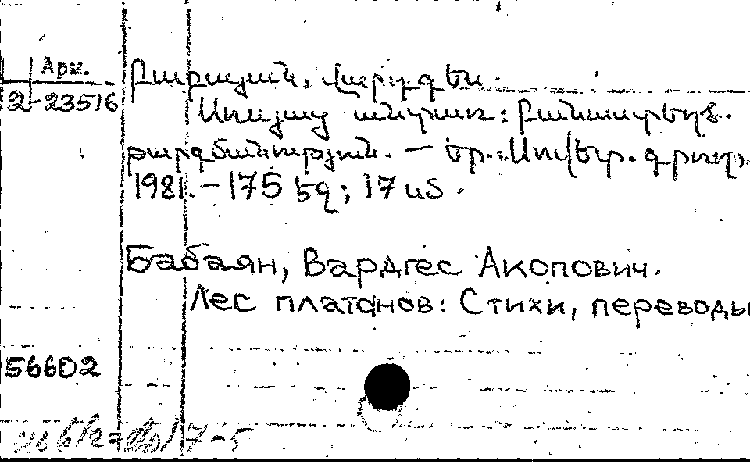 Арм.
Բաբայան, Վարդգես.
2-23516
Սոսյաց անտառ: Բանաստեղծ.
թարգմանություն. — Եր.: Սովետ. գրող,
1981. — 175 էջ; 17 սմ.
Бабаян, Вардгес Акопович.
Лес платанов: Стихи, переводы
56602